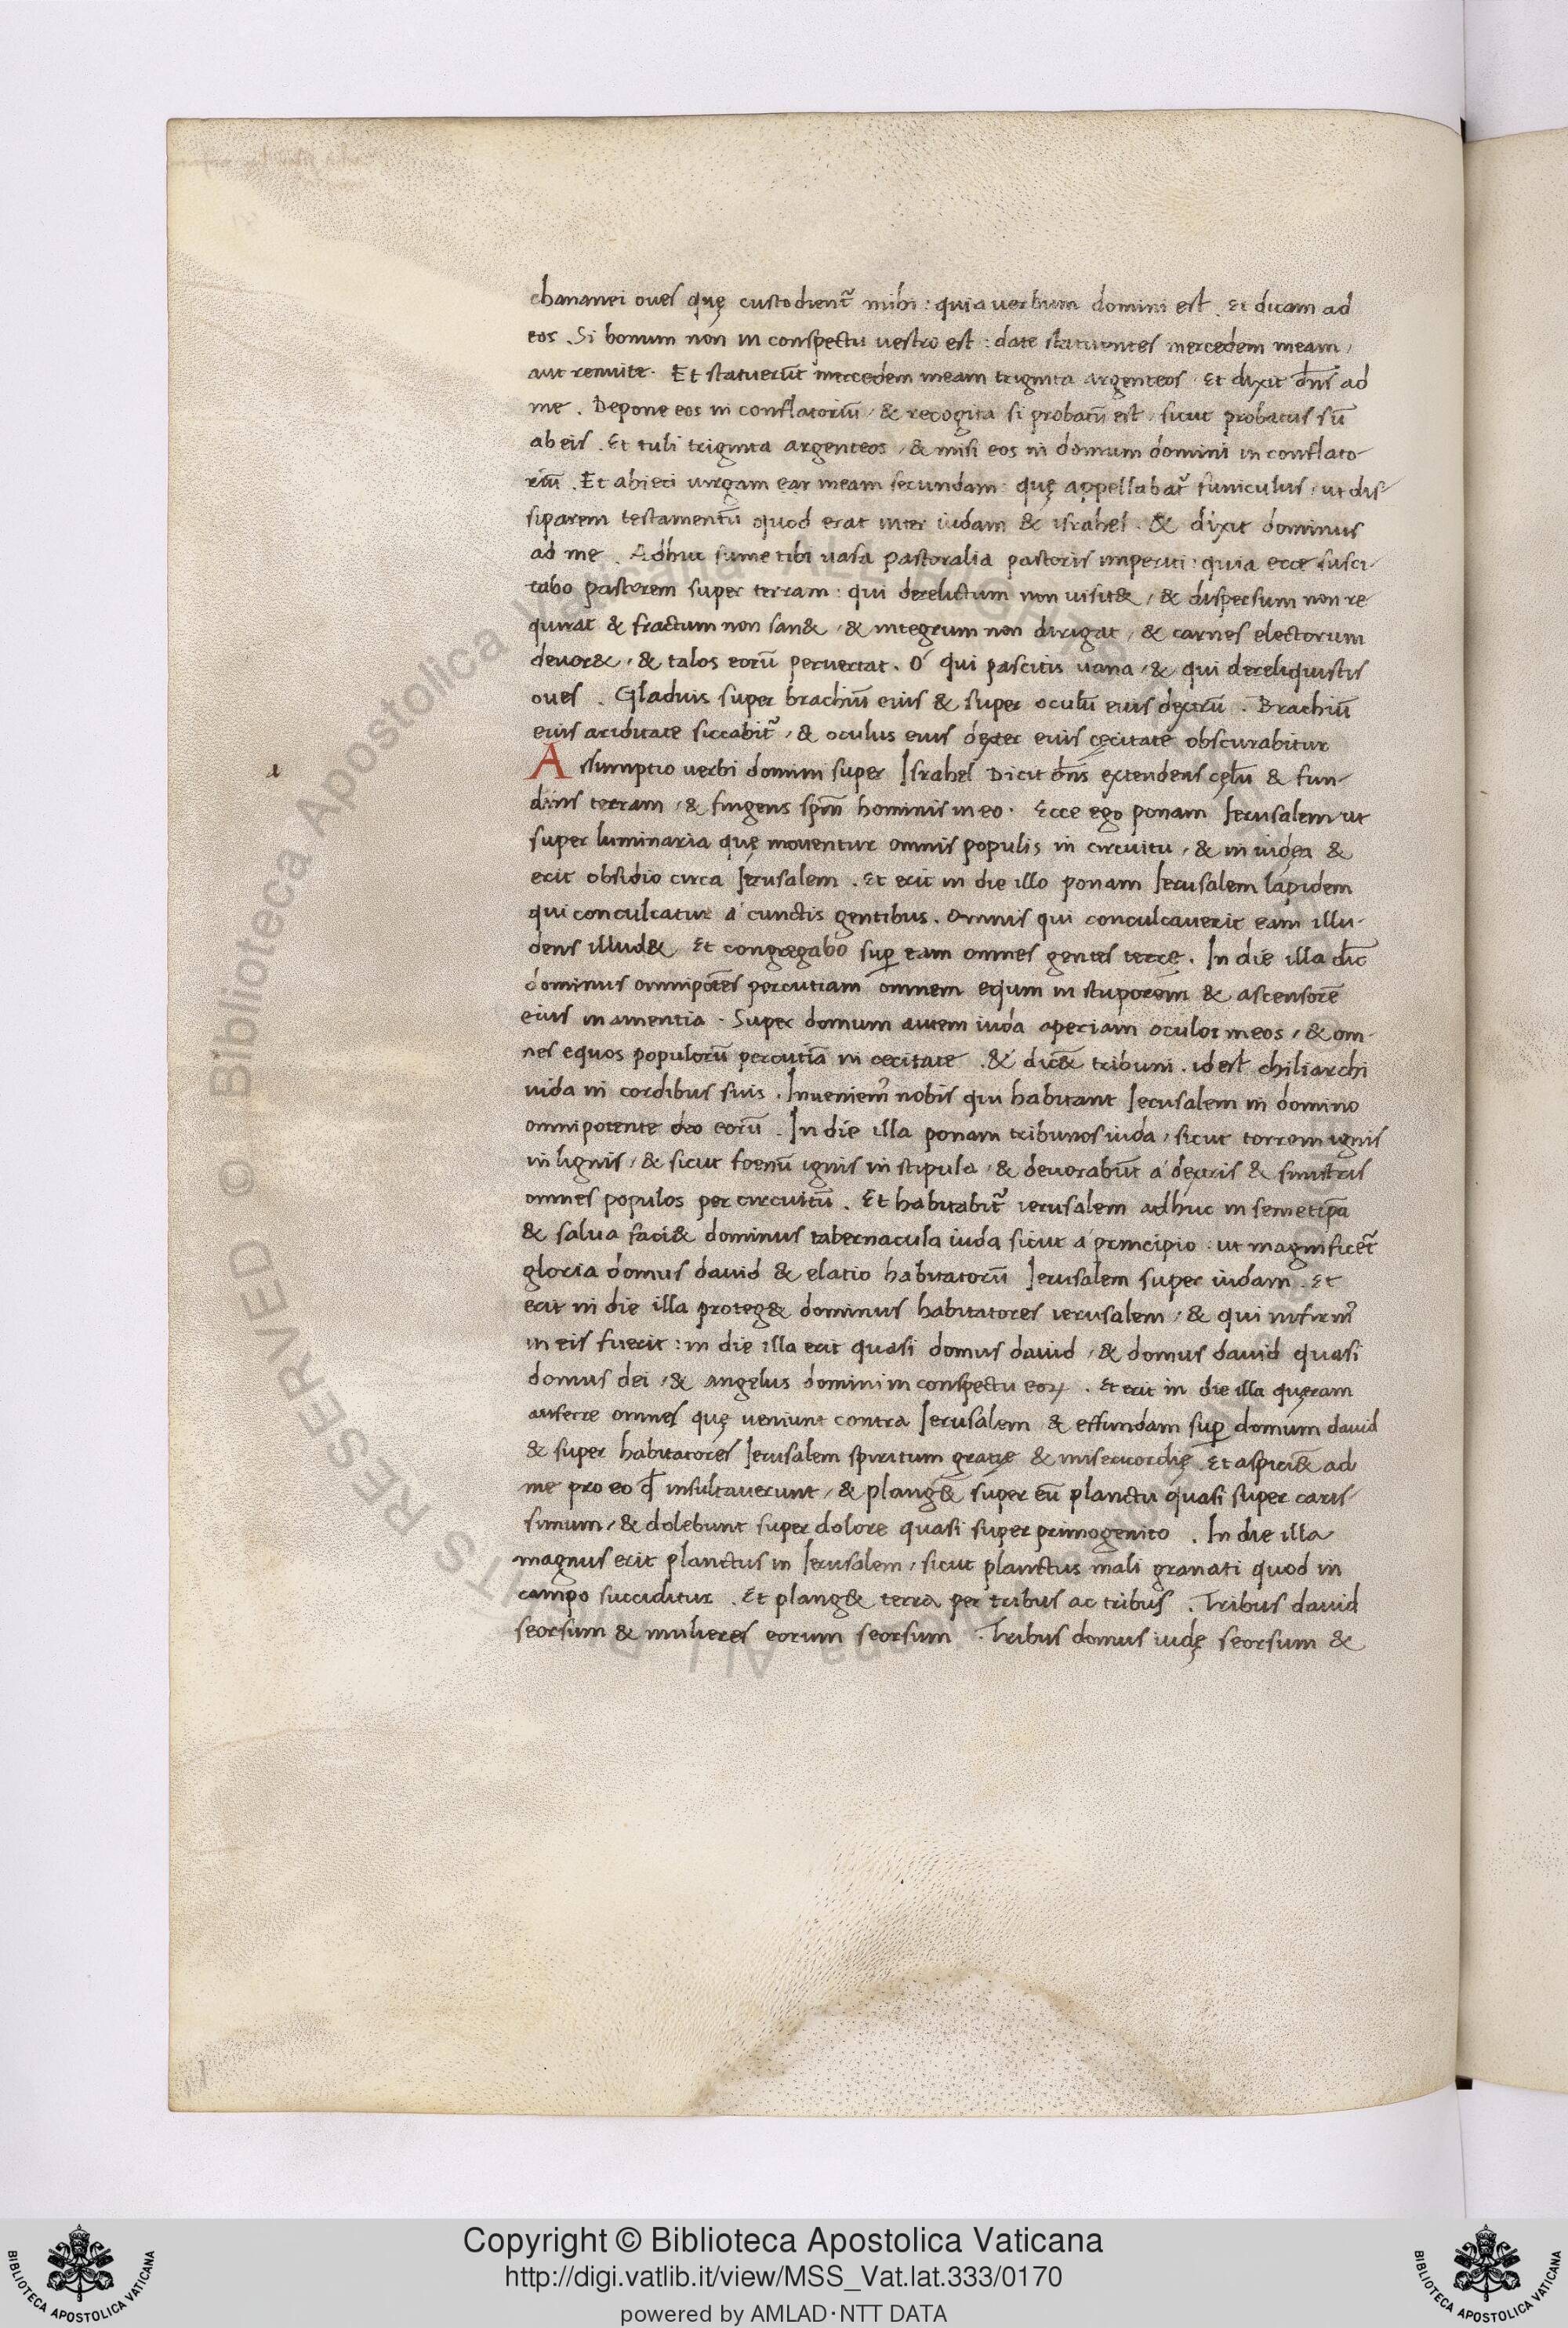 chananei oues quę custodient᷑ mihi : quia uerbum domini est . Et dicam ad
eos . Si bonum non in conspectu uestro est : date statuentes mercedem meam ,
aut renuite . Et statuerūt mercedem meam triginta argenteos . Et dixit dn̄s ad
me . Depone eos in conflatoriū , & recogita si probatū est , sicut probatus sū
ab eis . Et tuli triginta argenteos , & misi eos in domum domini in conflato-
riū . Et abieci uirgam meam secundam : quę appellabat᷑ funiculus , ut dis-
siparem testamentū quod erat inter iudam & israhel . & dixit dominus
ad me . Adhuc sume tibi uasa pastoralia pastoris imperiti : quia ecce susci-
tabo pastorem super terram : qui derelictum non uisit& , & dispersum non re
quirat & fractum non san& , & integrum non dirigat , & carnes electorum
deuor& , & talos eorū peruertat . O´ qui pascitis uana , & qui dereliquistis
oues . Gladius super brachiū eius & super oculū eius dextrū . Brachiū
eius ariditate siccabit᷑ , & oculus eius dexter eius cęcitate obscurabitur
A ssumptio uerbi domini super Israhel Dicit dn̄s extendens cęlū & fun-
dans terram , & fingens spm̄ hominis in eo . Ecce ego ponam Ierusalem ut
super luminaria quę mouentur omnis populis in circuitu , & in iudęa &
erit obsidio circa Ierusalem . Et erit in die illo ponam Ierusalem lapidem
qui conculcatur a´ cunctis gentibus . Omnis qui conculcauerit eam illu-
dens illud& . Et congregabo sup̱ eam omnes gentes terrę . In die illa dic̄
dominus omnipotēs percutiam omnem equm in stuporem & ascensorē
eius in amentia . Super domum autem iuda aperiam oculos meos , & om-
nes equos populorū percutiā in cecitate . & dicēt tribuni . id est chiliarchi
iuda in cordibus suis . Inueniem᷒ nobis qui habitant Ierusalem in domino
omnipotente deo eorū . In die illa ponam tribunos iuda , sicut torrem ignis
in lignis , & sicut foenū ignis in stipula , & deuorabūt a´ dextris & sinistris
omnes populos per circuitū . Et habitabit᷑ ierusalem adhuc in semetip̄a
& salua faci& dominus tabernacula iuda sicut a´ principio . ut magnificet᷑
gloria domus dauid & elatio habitatorū Ierusalem super iudam . Et
erit in die illa proteg& dominus habitatores ierusalem , & qui infirm᷒
in eis fuerit : in die illa erit quasi domus dauid , & domus dauid quasi
domus dei , & angelus domini in conspectu eoꝝ . Et erit in die illa quęram
auferre omnes quę ueniunt contra Ierusalem & effundam sup̱ domum dauid
& super habitatores Ierusalem spiritum gratię & misericordię . Et aspiciēt ad
me pro eo qđ insultauerunt , & plangēt super eū planctu quasi super caris-
simum , & dolebunt super dolore quasi super primogenito . In die illa
magnus erit planctus in Ierusalem , sicut planctus mali granati quod in
campo succiditur . Et plang& terra per tribus ac tribus . Tribus dauid
seorsum & mulieres eorum seorsum . Tribus domus iudę seorsum &
Copyright © Biblioteca Apostolica Vaticana
http://digi.vatlib.it/view/MSS_Vat.lat.333/0170
powered by AMLAD·NTT DATA